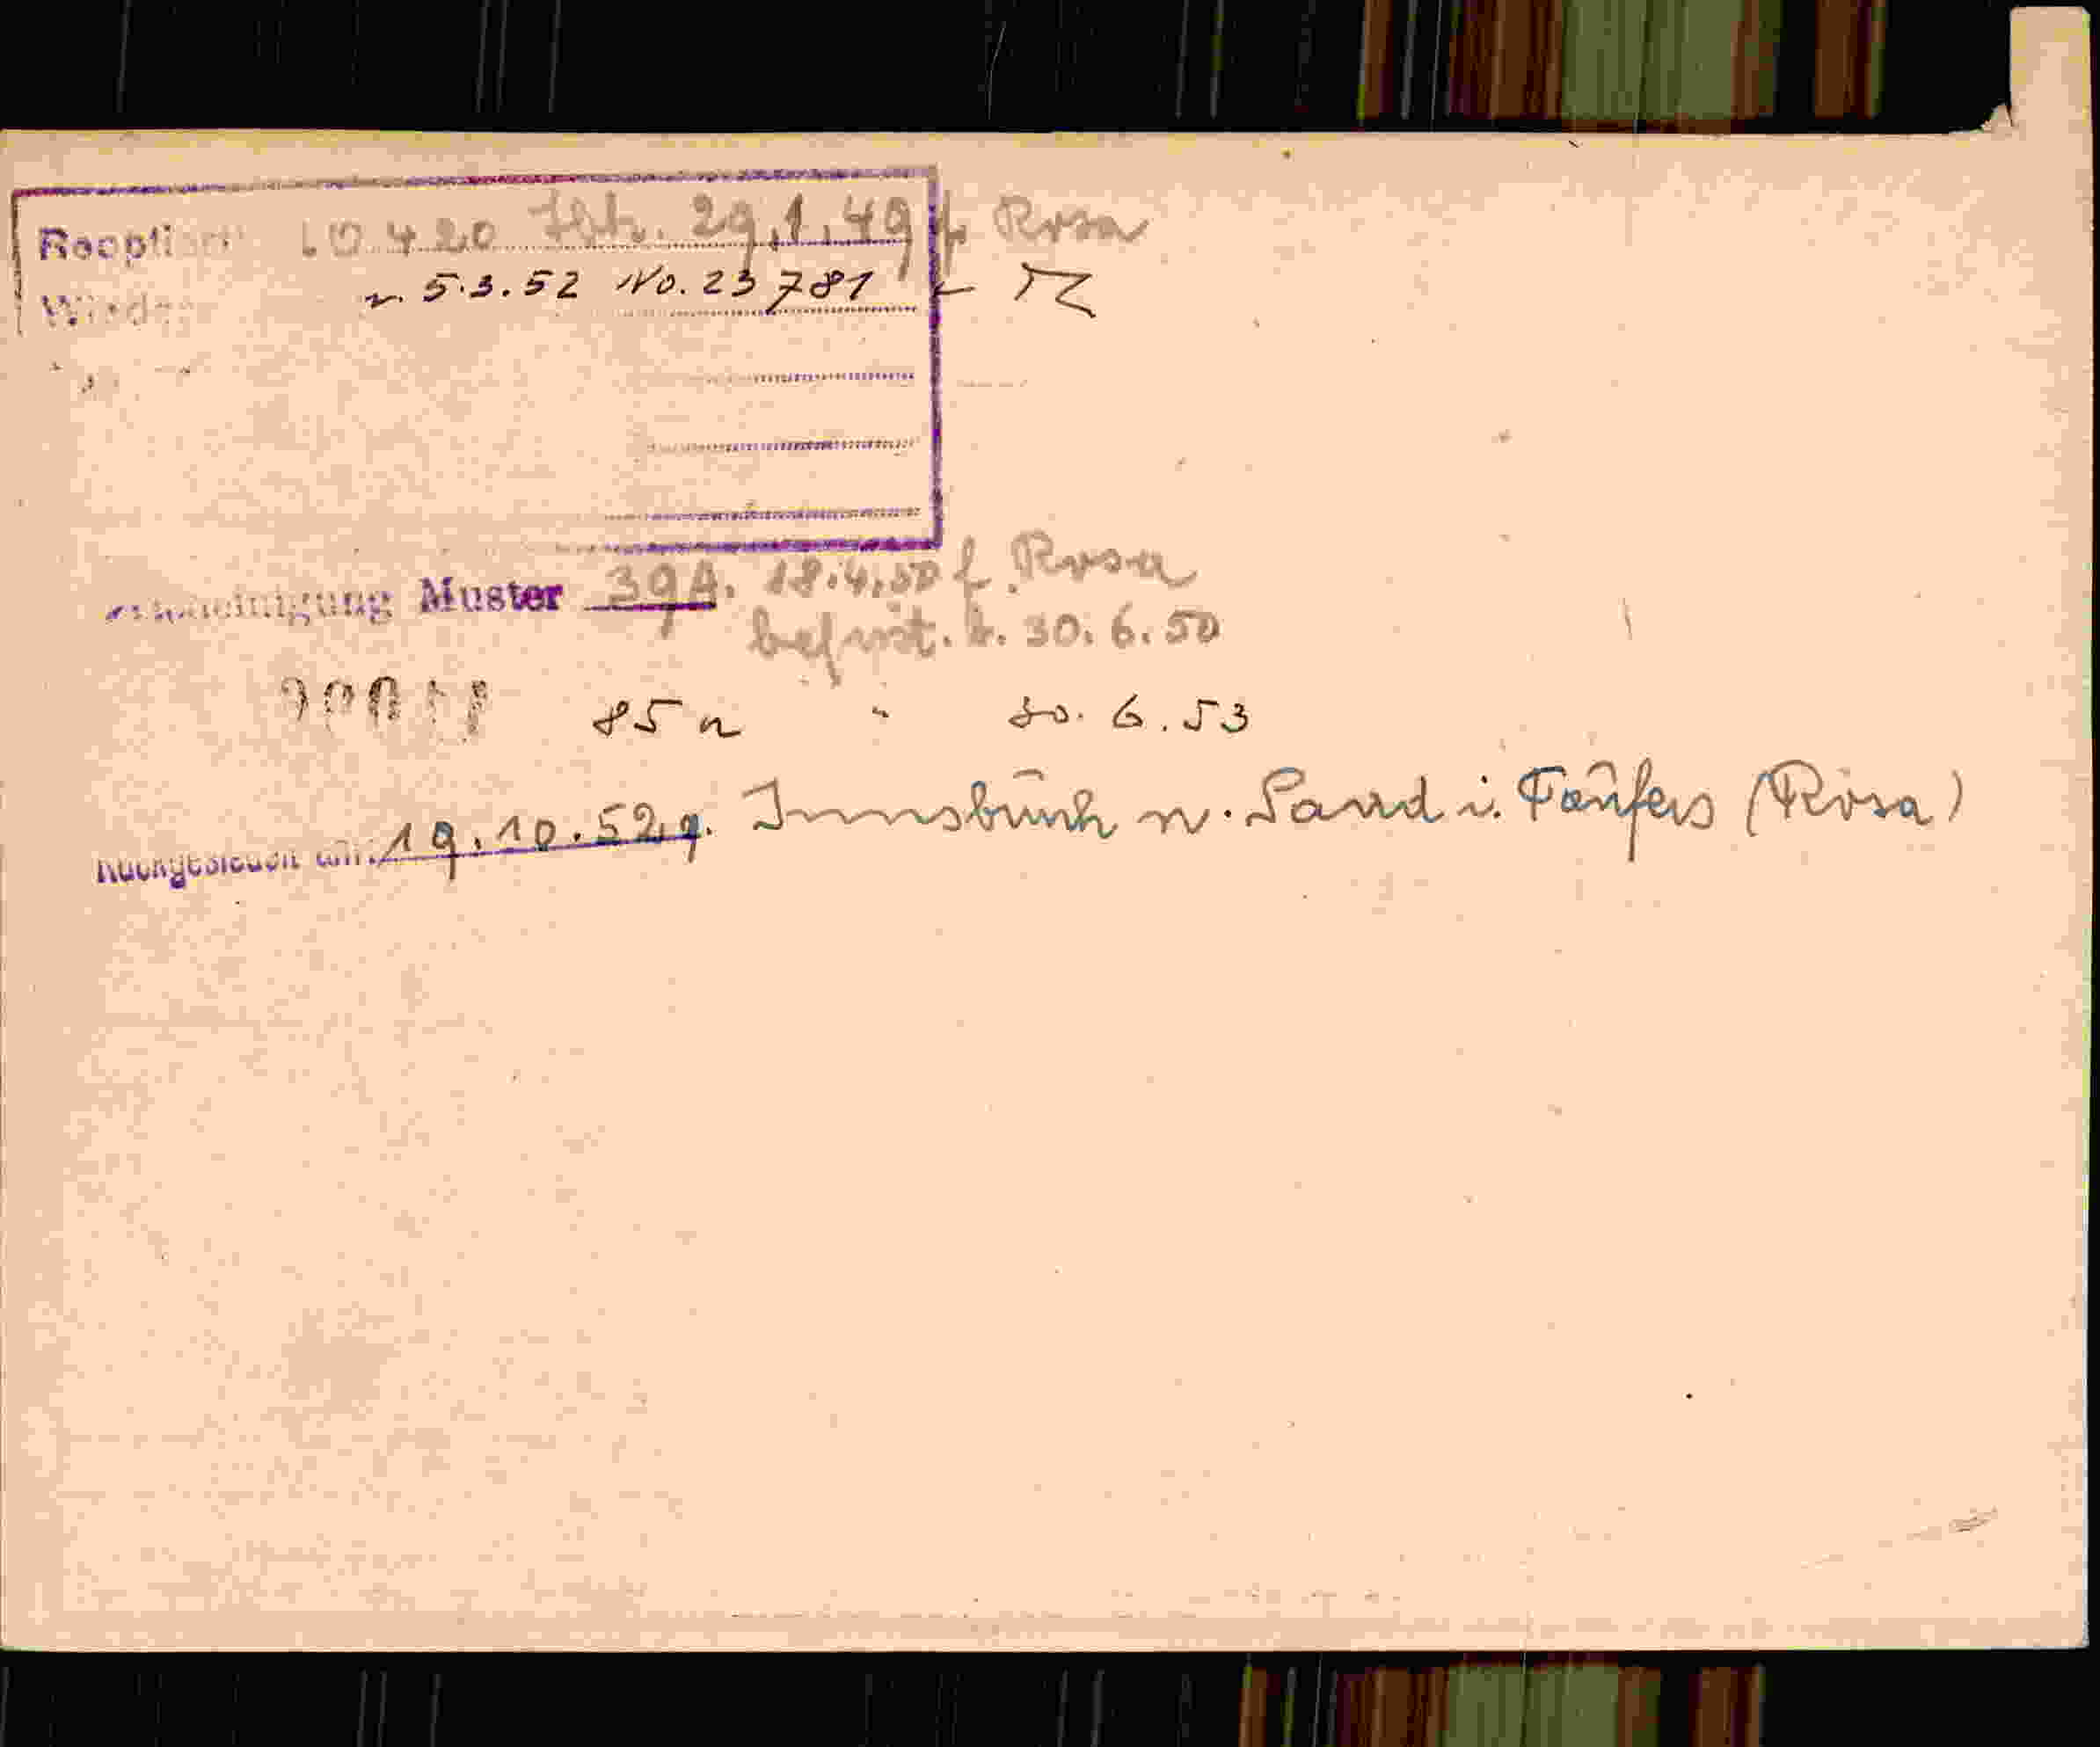 Reoptiert 10420 Ibk. 29.1.49 f. Rosa
v. 5.3.52 No. 23781
Bescheinigung Muster 39A. 18.4.50 f. Rosa
befrist. b. 30.6.50
85 a " 30.6.53
Rückgesiedelt am: 19.10.52 v. Innsbruck n. Sand i. Taufers (Rosa)